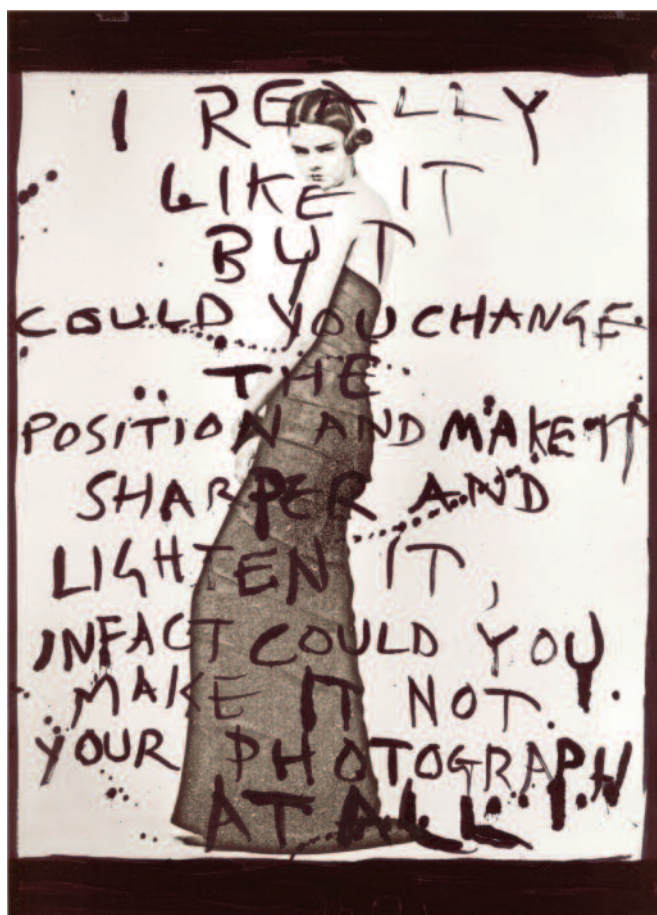 I REALLY
LIKE IT
BUT
COULD YOU CHANGE
THE
POSITION AND MAKE IT
SHARPER AND
LIGHTEN IT,
INFACT COULD YOU
MAKE IT NOT
YOUR PHOTOGRAPH
AT ALL